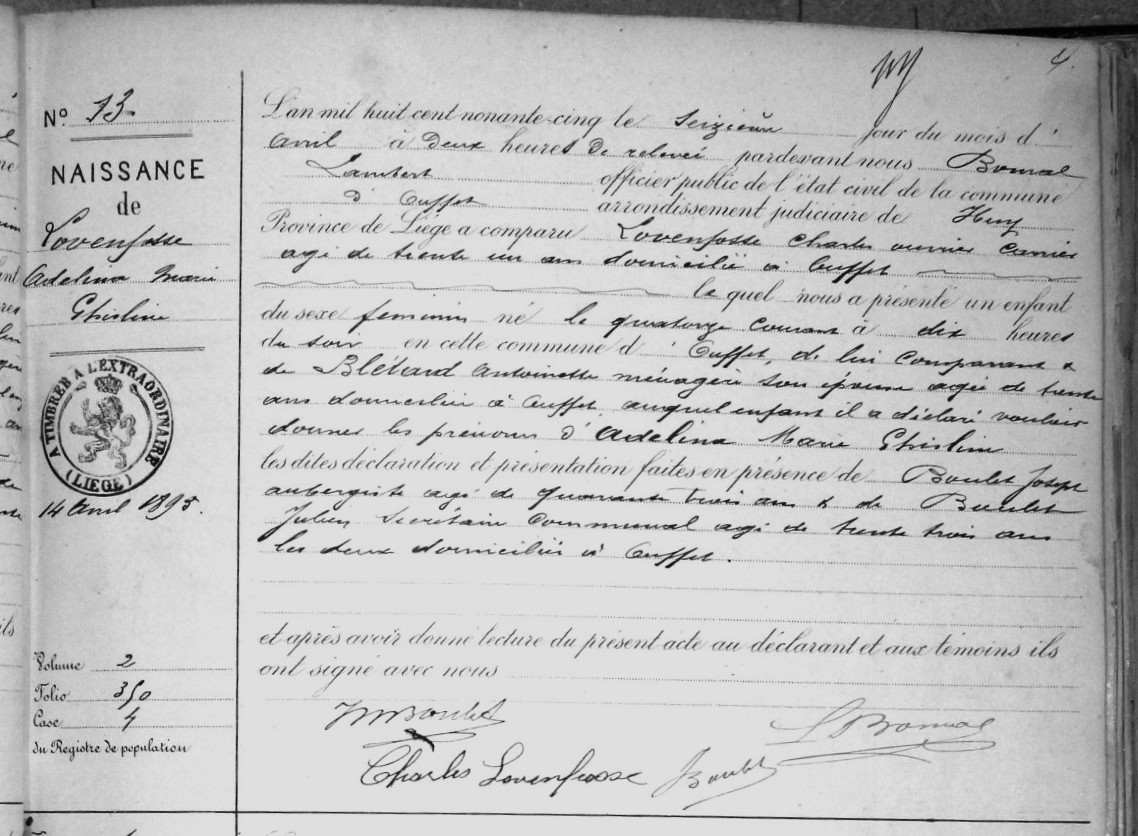 4.
N° 13
NAISSANCE
de
Lovenfosse
Adelina Marie
Ghisline
A TIMBRER A L'EXTRAORDINAIRE
(LIEGE)
14 Avril 1895.
Volume 2
Folio 350
Case 4
du Registre de population
L'an mil huit cent nonante-cinq le seizième jour du mois d'
Avril à Deux heures De relevée pardevant nous Bomal
Lambert officier public de l'état civil de la commune
d' Ouffet arrondissement judiciaire de Huy
Province de Liège a comparu Lovenfosse Charles ouvrier carrier
agé de trente un ans domicilié à Ouffet
le quel nous a présenté un enfant
du sexe feminin né le quatorze courant à dix heures
du soir en cette commune d' Ouffet, de lui comparant &
de Blétard Antoinette ménagère son épouse agée de trente
ans domiciliée à Ouffet auquel enfant il a déclaré vouloir
donner les prénoms d'Adelina Marie Ghisline
les dites déclaration et présentation faites en présence de Boulet Joseph
aubergiste agé de quarante trois ans & de Boulet
Julien Secrétaire Communal agé de trente trois ans
les deux domiciliés à Ouffet.
et après avoir donné lecture du présent acte au déclarant et aux témoins ils
ont signé avec nous
Boulet
L Bomal
Charles Lovenfosse
J Boulet